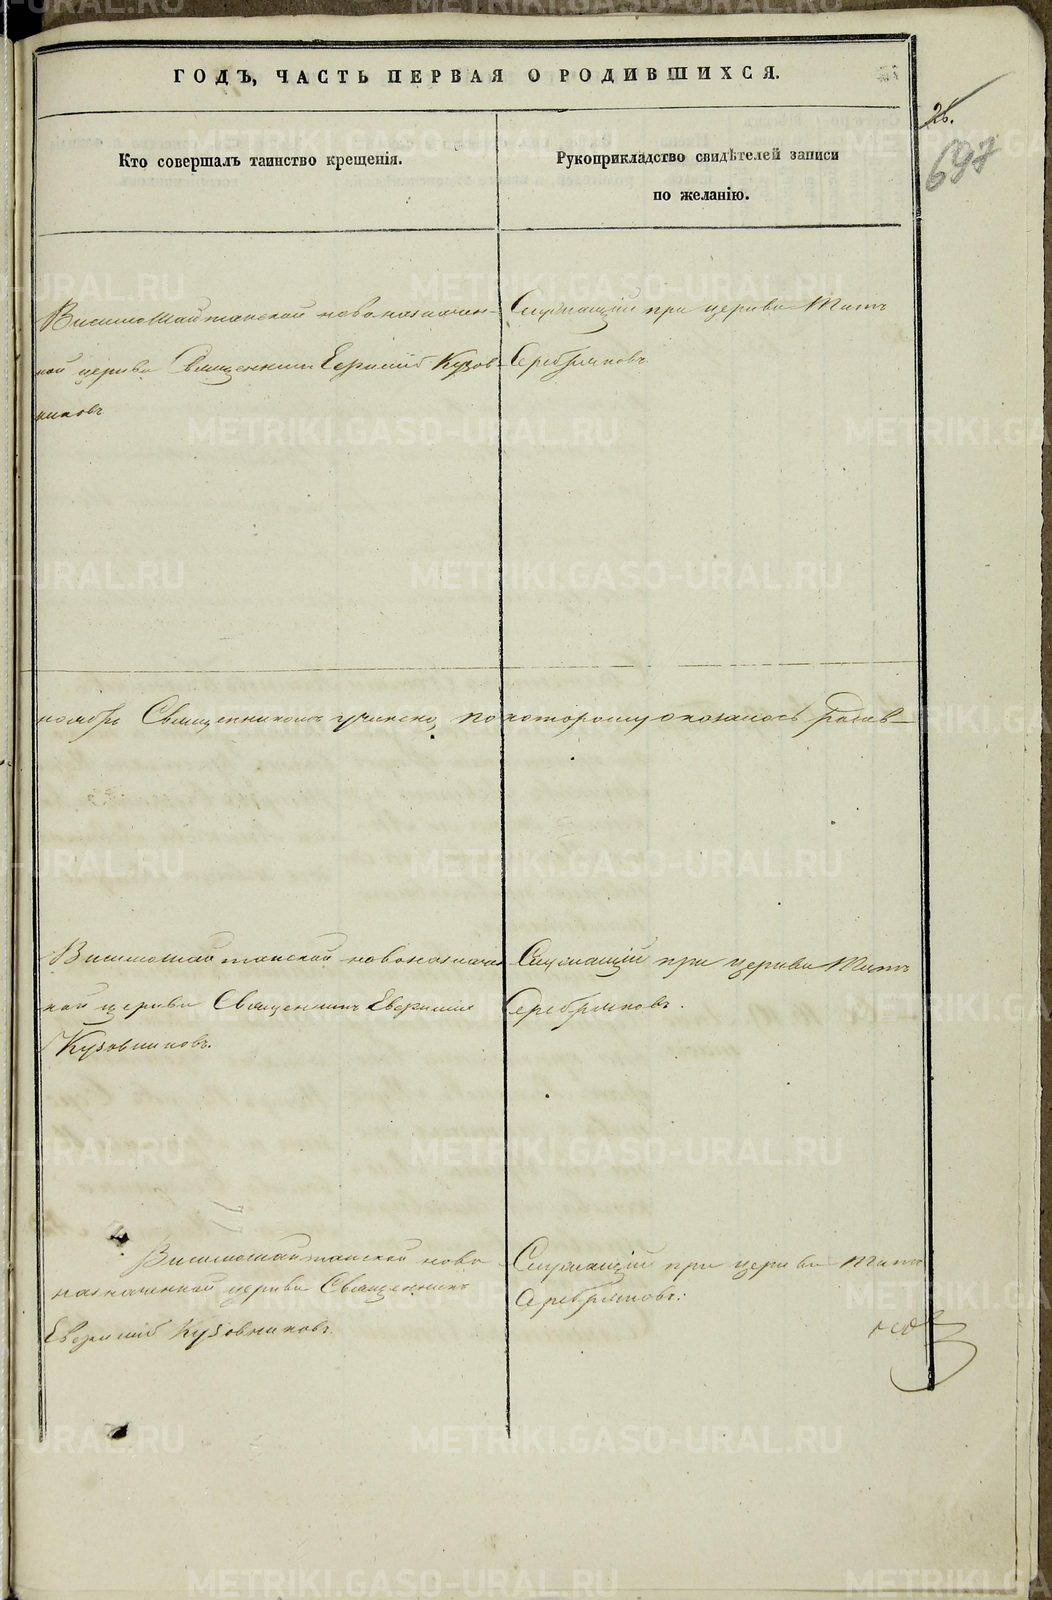 ГОДЪ, ЧАСТЬ ПЕРВАЯ О РОДИВШИХСЯ.
26.
697
Кто совершалъ таинство крещенія.
Рукоприкладство свидѣтелей записи
по желанію.
Висимошайтанской новоназначен-
ной церкви Священникъ Евфимій Кузов-
никовъ
Служащій при церкви Титъ
Серебряковъ
ноябрь Священникомъ учинено, по которому оказалось
Висимошайтанской новоназначен
ной церкви Священникъ Евфимій
Кузовниковъ.
Служащій при церкви Титъ
Серебряковъ.
Висимошайтанской ново
назначенной церкви Священникъ
Евфимій Кузовниковъ.
Служащій при церкви Титъ
Серебряковъ.
METRIKI.GASO-URAL.RU